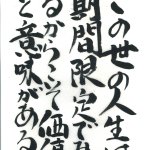 この世の人生は
期間限定でぁ
るからこそ価値
と意味がある